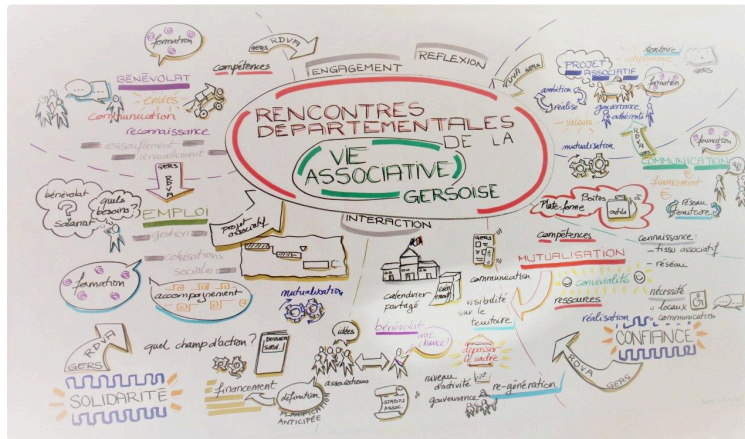 RENCONTRES
DÉPARTEMENTALES
DE LA
VIE
ASSOCIATIVE
GERSOISE
ENGAGEMENT
REFLEXION
INTERACTION
formation
GERS RDVA
compétences
BÉNÉVOLAT
envies
communication
reconnaissance
essoufflement
renouvellement
GERS
RDVA
bénévolat
?
salariat
quels
besoins?
EMPLOI
gestion
cotisations
sociales
projet
associatif
formation
accompagnement
mutualisation
RDVA
GERS
SOLIDARITÉ
quel champ d'action?
DOSSIER
SUBV.
financement
définition
PLANIFICATION
ANTICIPÉE
idées
associations
calendrier
partagé
bénévolat
une
chance!
communication
visibilité
sur le
territoire
dépasser
le cadre
niveau
d'activité
&
gouvernance
STATUTS
ASSOC.
re-génération
RDVA GERS
PROJET
ASSOCIATIF
territoire
GERS
ambition
réalisé
valeurs
gouvernance
adhérents
formation
mutualisation
RDVA
GERS
formation
COMMUNICATION
financement
€
réseau
territoire
Plate-forme
Boîtes
outils
compétences
MUTUALISATION
convivialité
connaissance:
- tissu associatif
- réseau
ressources
nécessité
- locaux
- communication
réalisation
CONFIANCE
RDVA
GERS